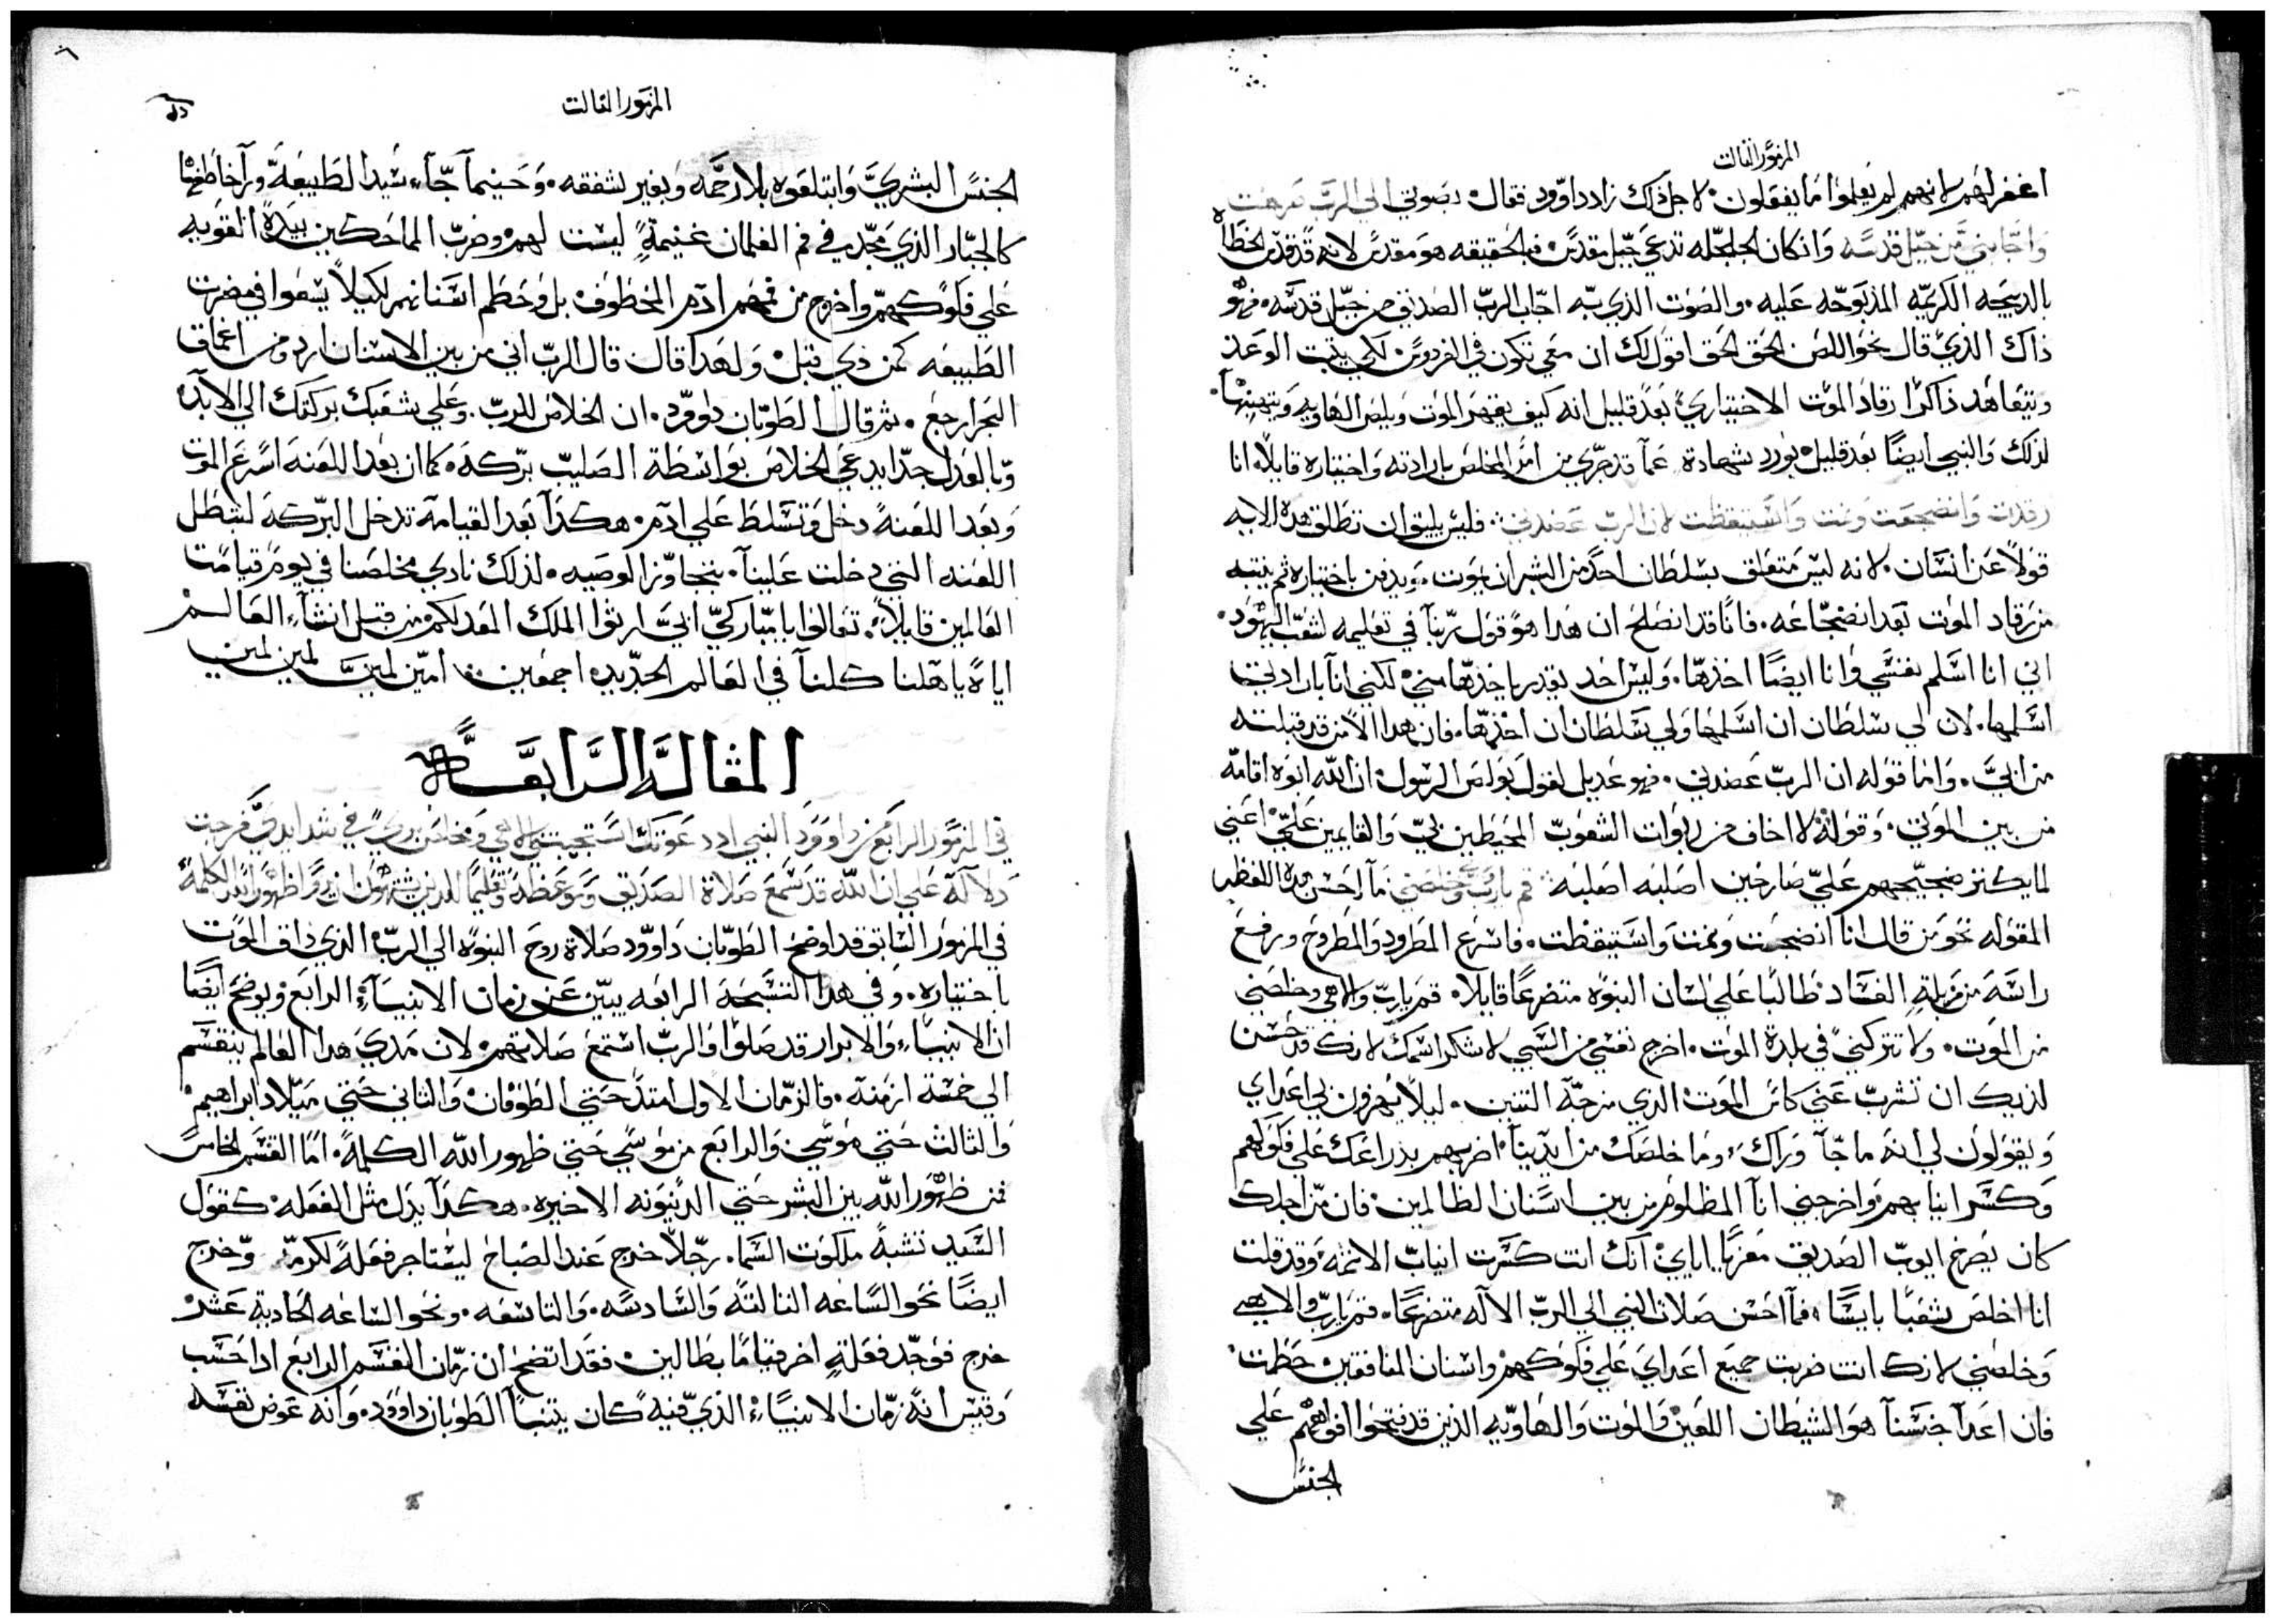 المزمور الثالث
اغفر لهم لانهم لم يعلموا ما يفعلون. لاجل ذلك زاد داوود فقال. بصوتي الي الرب صرخت
واجابني من جبل قدسه وان كان الجلجله تدعي جبل مقدس. فبالحقيقه هو مقدس لانه قد قدس الخطاه
بالدبيحه الكريمه المذبوحه عليه. والصوت الذي به اجاب الرب الصديق من جبل قدسه. فهو
ذاك الذي قال نحو اللص الحق الحق اقول لك ان معي تكون في الفردوس. لكي يثبت الوعد
ويتعاهد ذاكرا رقاد الموت الاختياري. بعد قليل انه كيف يقهر الموت ويلبس الهاويه
لذلك والنبي ايضا بعد قليل يورد شهادة عما قد جري من امر المخلص بارادته واختياره قايلا. انا
رقدت وانضجعت ونمت واستيقظت لان الرب عضدني. فليس يليق ان تطلق هده الايه
قولا عن انسان. لانه ليس متعلق بسلطان احد من البشر ان يموت. ويدفن باختياره ثم ينتبه
من رقاد الموت بعد انضجاعه. فاذا قد انصلح ان هدا هو قول ربنا في تعليمه لشعب اليهود.
اني انا اسلم نفسي وانا ايضا اخذها. وليس احد يقدر ياخذها مني. لكني انا بارادتي
اسلمها. لان لي سلطان ان اسلمها ولي سلطان ان اخذها. فان هدا الامر قد قبلته
من ابي. واما قوله ان الرب عضدني. فهو عديل لقول بولص الرسول. ان الله ابوه اقامه
من بين الموتي. وقوله لا اخاف من ربوات الشعوب المحيطين بي والقايمين علي. اعني
لما يكنز ضجيجهم علي صارخين اصلبه اصلبه. قم يارب وخلصني ما احسن هده اللفظه
المقوله نحو من قال انا انضجعت ونمت واستيقظت. فاسرع المطرود والمطروح ورفع
راسه من مزبلة الفساد طالبا علي لسان النبوه متضرعا قايلا. قم يارب والاهي وخلصني
من الموت. ولا تتركني في بلدة الموت. اخرج نفسي من السجن لاشكر اسمك لانك قد حسن
لديك ان تشرب عني كاس الموت الذي من حمة التنين. ليلا يهزون بي اعداي
ويقولون لي انه ما جا وراك. وما خلصك من ايدينا. اضربهم بذراعك علي فكوكهم
وكسر انيابهم واخرجني انا المظلوم من بين اسنان الظالمين. فان من اجلك
كان يصرخ ايوب الصديق معزيا اياي. انك انت كسرت انياب الاثمه وقد قلت
انا اخلص شعبا بايسا. فما احسن صلاة النبي الي الرب الاله متضرعا. قم يارب والاهي
وخلصني لانك انت ضربت جميع اعداي علي فكوكهم واسنان المنافقين حطمت.
فان اعدا جنسنا هو الشيطان اللعين والموت والهاويه الذين قد فتحوا افواههم علي
الجنس
المزمور الثالث
الجنس البشري وابتلعوه بلا رحمه وبغير شفقه. وحينما جاء سيد الطبيعة وراخاطفها
كالجبار الذي يجد في فم الغلمان غنيمة ليست لهم. وضرب الماحكين بيده القويه
علي فكوكهم واخرج من فمهم ادم المخطوف. بل وحطم اسنانهم لكيلا يسعوا في مضرت
الطبيعه كمن ذي قبل. ولهدا قال قال الرب اني من بين الاسنان ارد ومن اعماق
البحر ارجع. ثم قال الطوبان داوود. ان الخلاص للرب. وعلي شعبك بركتك الي الابد.
وبالعدل جدا يدعي الخلاص بواسطة الصليب بركه. كما ان بعد اللعنه اسرع الموت
وبعد اللعنة دخل وتسلط علي ادم. هكذا بعد القيامة تدخل البركه لتبطل
اللعنه التي دخلت علينا. بتجاوز الوصيه. لذلك نادي مخلصنا في يوم قيامت
العالمين قايلا. تعالوا يا مباركي ابي ارثوا الملك المعد لكم من قبل انشاء العالم
اياه ياهلنا كلنا في العالم الجديد اجمعين. امين امين امين امين
المقالة الرابعة
في المزمور الرابع من داوود النبي اد دعوتك استجبتني الاهي ومخلص بري في شدايدي فرجت
دلالة علي ان الله قد سمع صلاة الصديق وموعظة وتعليما للدين يشتهون ان يروا ظهور الله الكلمة
في المزمور السابق قد اوضح الطوبان داوود صلاة روح النبوه الي الرب الذي داق الموت
باختياره. وفي هدا التسبحة الرابعه يبين عن زمان الانبياء الرابع ويوضح ايضا
ان الانبياء والابرار قد صلوا والرب استمع صلاتهم. لان مدي هدا العالم ينقسم
الي خمسة ازمنه. فالزمان الاول امتد حتي الطوفان. والثاني حتي ميلاد ابراهيم.
والثالث حتي موسي. والرابع من موسي حتي ظهور الله الكلمة. اما القسم الخامس
فمن ظهور الله بين البشر حتي الدينونه الاخيره. هكذا يدل مثل الفعله. كقول
السيد تشبه ملكوت السما. رجلا خرج عند الصباح ليستاجر فعلة لكرمه. وخرج
ايضا نحو الساعه الثالثه والسادسه. والتاسعه. ونحو الساعه الحاديه عشر
خرج فوجد فعلة اخر قياما بطالين. فقد اتضح ان زمان القسم الرابع ادا حسب
وقيس انه زمان الانبياء. الذي فيه كان يتنبا الطوبان داوود. وانه عوض نفسه